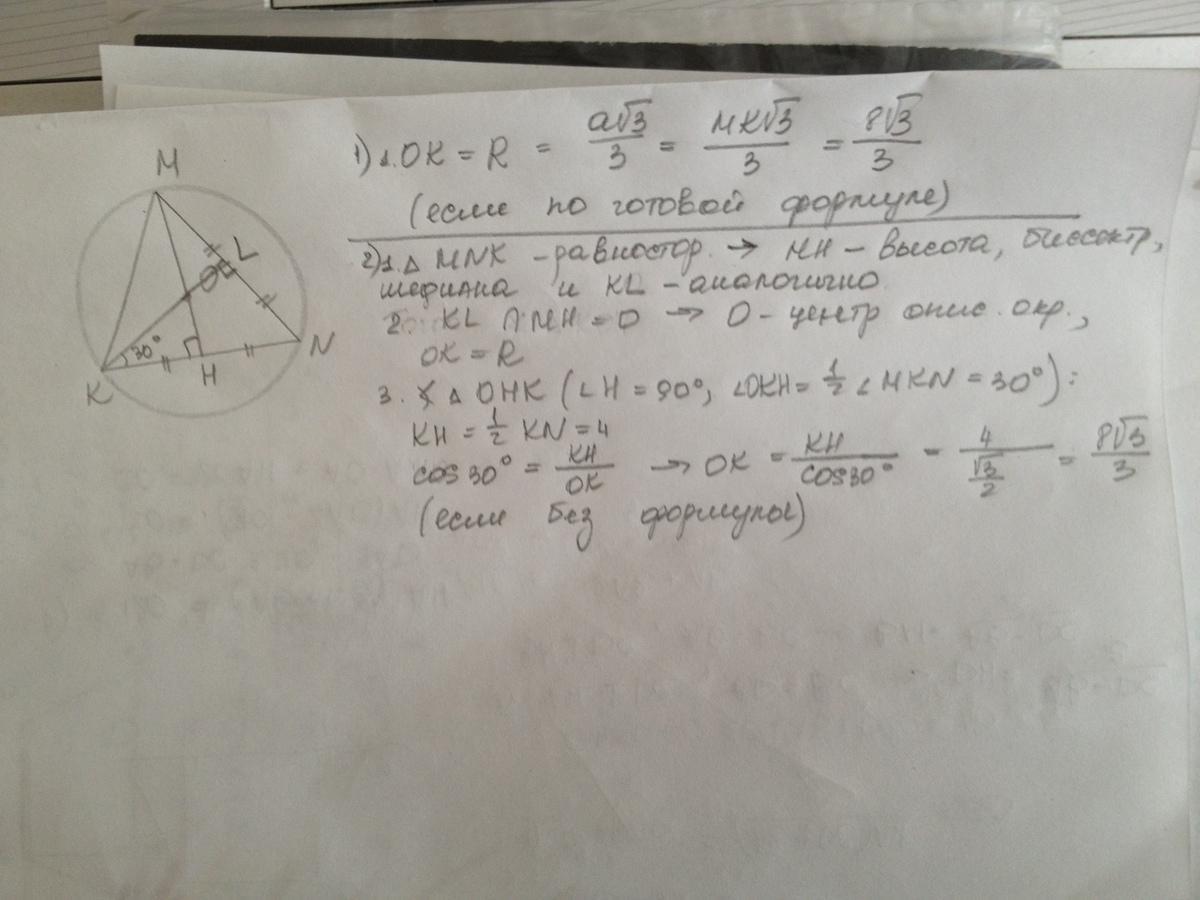 M
O
L
N
K
H
30°
1) 1. OK = R = a√3/3 = MK√3/3 = 8√3/3
(если по готовой формуле)
2) 1. △ MNK - равностор. → MH - высота, биссектр,
медиана и KL - аналогично
2. KL ∩ MH = O → O - центр опис. окр.,
OK = R
3. △ OHK (∠H = 90°, ∠OKH = 1/2 ∠ MKN = 30°):
KH = 1/2 KN = 4
cos30° = KH/OK → OK = KH/cos30° = 4/(√3/2) = 8√3/3
(если без формулы)